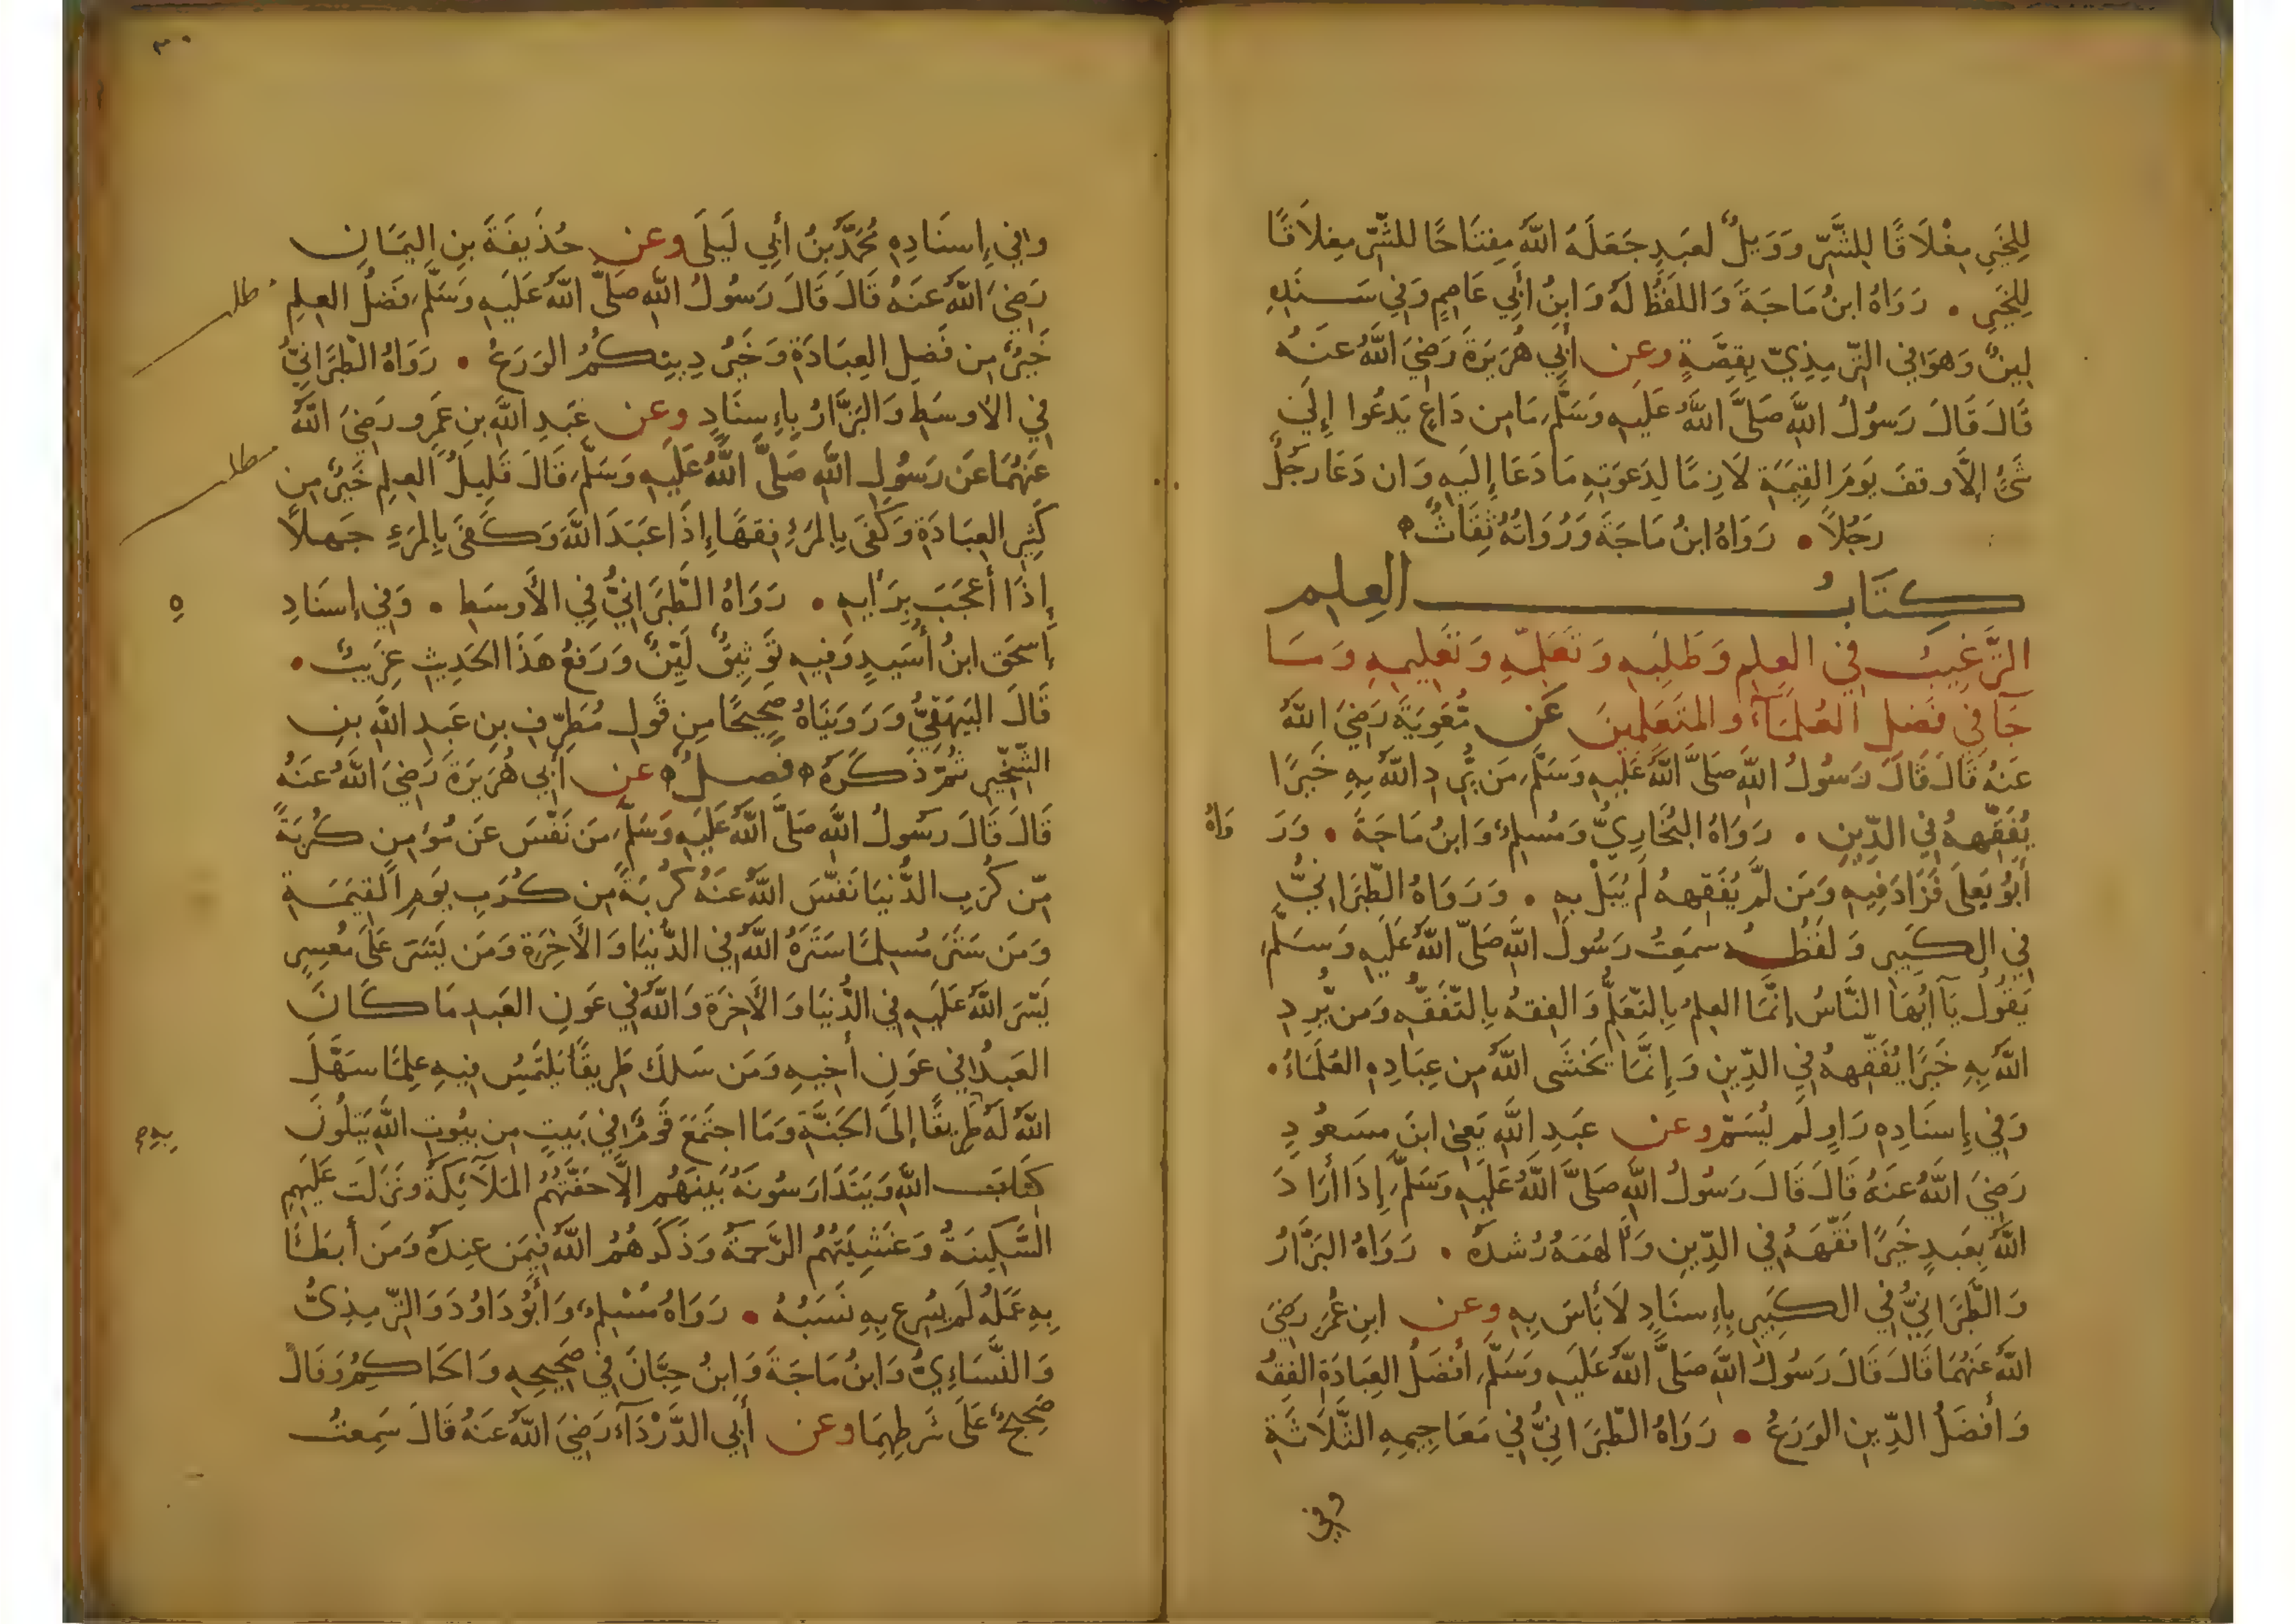 لِلخَيرِ مِغْلَاقًا لِلشَّرِّ وَوَيلٌ لعَبدٍ جَعَلَهُ اللَّهُ مِفتَاحًا للشَّرِّ مِغلَاقًا
لِلخَيرِ . رَوَاهُ ابنُ مَاجَةَ وَاللفَظُ لَهُ وَابنُ أَبِي عَاصِمٍ وَفِي سَنَدِهِ
لِينٌ وَهوَ فِي التِّرمِذِيِّ بِقِصَّةٍ وعن أَبِي هُرَيرَةَ رَضِيَ اللَّهُ عَنهُ
قَالَ قَالَ رَسُولُ اللَّهِ صَلَّى اللَّهُ عَلَيهِ وَسَلَّمَ مَا مِن دَاعٍ يَدعُوا إِلَى
شَئٍ إِلَّا وقفَ يَومَ القِيمَةِ لَازِمًا لِدَعوَتِهِ مَا دَعَا إِلَيهِ وَان دَعَا رَجُلٌ
رَجُلاً . رَوَاهُ ابنُ مَاجَةَ وَرُوَاتُهُ ثِقَاتٌ ه
كِتَابُ العِلمِ
الترَّغِيبُ فِي العِلمِ وَطَلَبِهِ وَتَعَلُّمِهِ وَتَعلِيمِهِ وَمَا
جَآ فِي فَضلِ العُلَمَآءِ وَالمتَعَلمِينَ عَن مُعوِيَةَ رَضِيَ اللَّهُ
عَنهُ قَالَ قَالَ رَسُولُ اللَّهِ صَلَّى اللَّهُ عَلَيهِ وَسَلَّمَ مَن يُّرِدِ اللَّهُ بِهِ خَيرًا
يُفَقِّههُ فِي الدِّينِ . رَوَاهُ البُخَارِيُّ وَمُسلِمٌ وَابنُ مَاجَةَ . وَرَ وَاهُ
أَبُو يَعلَى فَزَادَ فِيهِ وَمَن لَّم يُفَقِههُ لَم يُبَلْ بِهِ . وَرَوَاهُ الطَّبَرَانِيُّ
فِي الكَبِيرِ وَلفَظُهُ سمَعِتُ رَسُولَ اللَّهِ صَلَّى اللَّهُ عَلَيهِ وَسَلَّمَ
يَقُولُ يَآ أَيُّهَا النَّاسُ إِنَّمَا العِلمُ بِالتَّعَلُّمِ وَالفِقهُ بِالتَّفَقُّهِ وَمَن يُّرِدِ
اللَّهُ بِهِ خَيرًا يُفَقِّههُ فِي الدِّينِ وَإِنَّمَا يَخشَى اللَّهَ مِن عِبَادِهِ العُلَمَاءُ .
وَفِي إِسنَادِهِ رَاوٍ لَم يُسَمَّ وعن عَبدِ اللَّهِ يَعنِى ابنَ مسَعُودٍ
رَضِيَ اللَّهُ عَنهُ قَالَ قَالَ رَسُولُ اللَّهِ صَلَّى اللَّهُ عَلَيهِ وَسَلَّمَ إِذَا أَرَادَ
اللَّهُ بِعَبدٍ خَيرًا فَقَّهَهُ فِي الدِّينِ وَأَلهَمَهُ رُشدَهُ . رَوَاهُ البَزَّارُ
وَالطَّبَرَانِيُّ فِي الكَبِيرِ بِإِسنَادٍ لَا بَأسَ بِهِ وعن ابنِ عُمَرَ رَضِيَ
اللَّهُ عَنهُمَا قَالَ قَالَ رَسُولُ اللَّهِ صَلَّى اللَّهُ عَلَيهِ وَسَلَّمَ أَفضَلُ العِبَادَةِ الفِقهُ
وَأَفضَلُ الدِّينِ الوَرَعُ . رَوَاهُ الطَّبَرَانِيُّ فِي مَعَاجِيمِهِ الثَّلَاثَةِ
وفي
٣٠
وَفِي إِسنَادِهِ مُحَمَّدُ بنُ أَبِي لَيلَى وعن حُذَيفَةَ بنِ اليَمَانِ
رَضِيَ اللَّهُ عَنهُ قَالَ قَالَ رَسُولُ اللَّهِ صَلَّى اللَّهُ عَلَيهِ وَسَلَّمَ فَضلُ العِلمِ
خَيرٌ مِن فَضلِ العِبَادَةِ وَخَيرُ دِينِكُمُ الوَرَعُ . رَوَاهُ الطَّبَرَانِيُّ
فِي الأَوسَطِ وَالبَزَّارُ بِإِسنَادٍ وعن عَبدِ اللَّهِ بنِ عَمرٍو رَضِيَ اللَّهُ
عَنهُمَا عَن رَسُولِ اللَّهِ صَلَّى اللَّهُ عَلَيهِ وَسَلَّمَ قَالَ قَلِيلُ العِلمِ خَيرٌ مِن
كَثِيرِ العِبَادَةِ وَكَفَى بِالمَرءِ فِقهًا إِذَا عَبَدَ اللَّهَ وَكَفَى بِالمَرءِ جَهلاً
إِذَا أَعجَبَ بِرَايِهِ . رَوَاهُ الطَّبَرَانِيُّ فِي الأَوسَطِ . وَفِي إِسنَادِ
إِسحَق ابنُ أُسَيدٍ وَفِيهِ تَوثِيقٌ لَيِّنٌ وَرَفعُ هَذَا الحَدِيثِ غَرِيبٌ .
قَالَ البَيهَقِيُّ وَرَوَينَاهُ صَحِيحًا مِن قَولِ مُطَرِّفِ بنِ عَبدِ اللَّهِ بنِ
الشِّخِّيرِ ثُمَّ ذَكَرَهُ ه فَصلٌ ه عن أَبِي هُرَيرَةَ رَضِيَ اللَّهُ عَنهُ
قَالَ قَالَ رسُولُ اللَّهِ صَلَّى اللَّهُ عَلَيهِ وَسَلَّمَ مَن نَفَّسَ عَن مُؤمِنٍ كُربَةً
مِّن كُرَبِ الدُّنيَا نَفَّسَ اللَّهُ عَنهُ كُربَةً مِن كُرَبِ يَومِ القِيمَةِ
وَمَن سَتَرَ مُسلِمًا سَتَرَهُ اللَّهُ فِي الدُّنيَا وَالأَخِرَةِ وَمَن يَسَّرَ عَلَى مُعسِرٍ
يَسَّرَ اللَّهُ عَلَيهِ فِي الدُّنيَا وَالأَخِرَةِ وَاللَّهُ فِي عَونِ العَبدِ مَا كَانَ
العَبدُ فِي عَونِ أَخِيهِ وَمَن سَلَكَ طَرِيقًا يَلتَمِسُ فِيهِ عِلمًا سَهَّلَ
اللَّهُ لَهُ طَرِيقًا إِلَى الجَنَّةِ وَمَا اجتَمَعَ قَومٌ فِي بَيتٍ مِن بُيُوتِ اللَّهِ يَتلُونَ
كِتَابَ اللَّهِ وَيَتَدَارَسُونَهُ بَينَهُم إِلَّا حَفَّتهُمُ المَلَآئِكَةُ وَنَزَلَت عَلَيهِمِ
السَّكِينَةُ وَغَشِيَتهُمُ الرَّحمَةُ وَذَكَرَهُمُ اللَّهُ فِيمَن عِندَهُ وَمَن أَبطَأَ
بِهِ عَمَلُهُ لَم يُسرِع بِهِ نَسَبُهُ . رَوَاهُ مُسْلِمٌ وَأَبُو دَاوُدَ وَالتِّرمِذِىُّ
وَالنَّسَاءِيُّ وَابنُ مَاجَةَ وَابنُ حِبَّانَ فِي صَحِيحِهِ وَالحَاكِمُ وَقَالَ
صَحِيحٌ عَلَى شَرطِهِمَا وعن أَبِي الدَّرْدَآءِ رَضِيَ اللَّهُ عَنهُ قَالَ سَمِعتُ